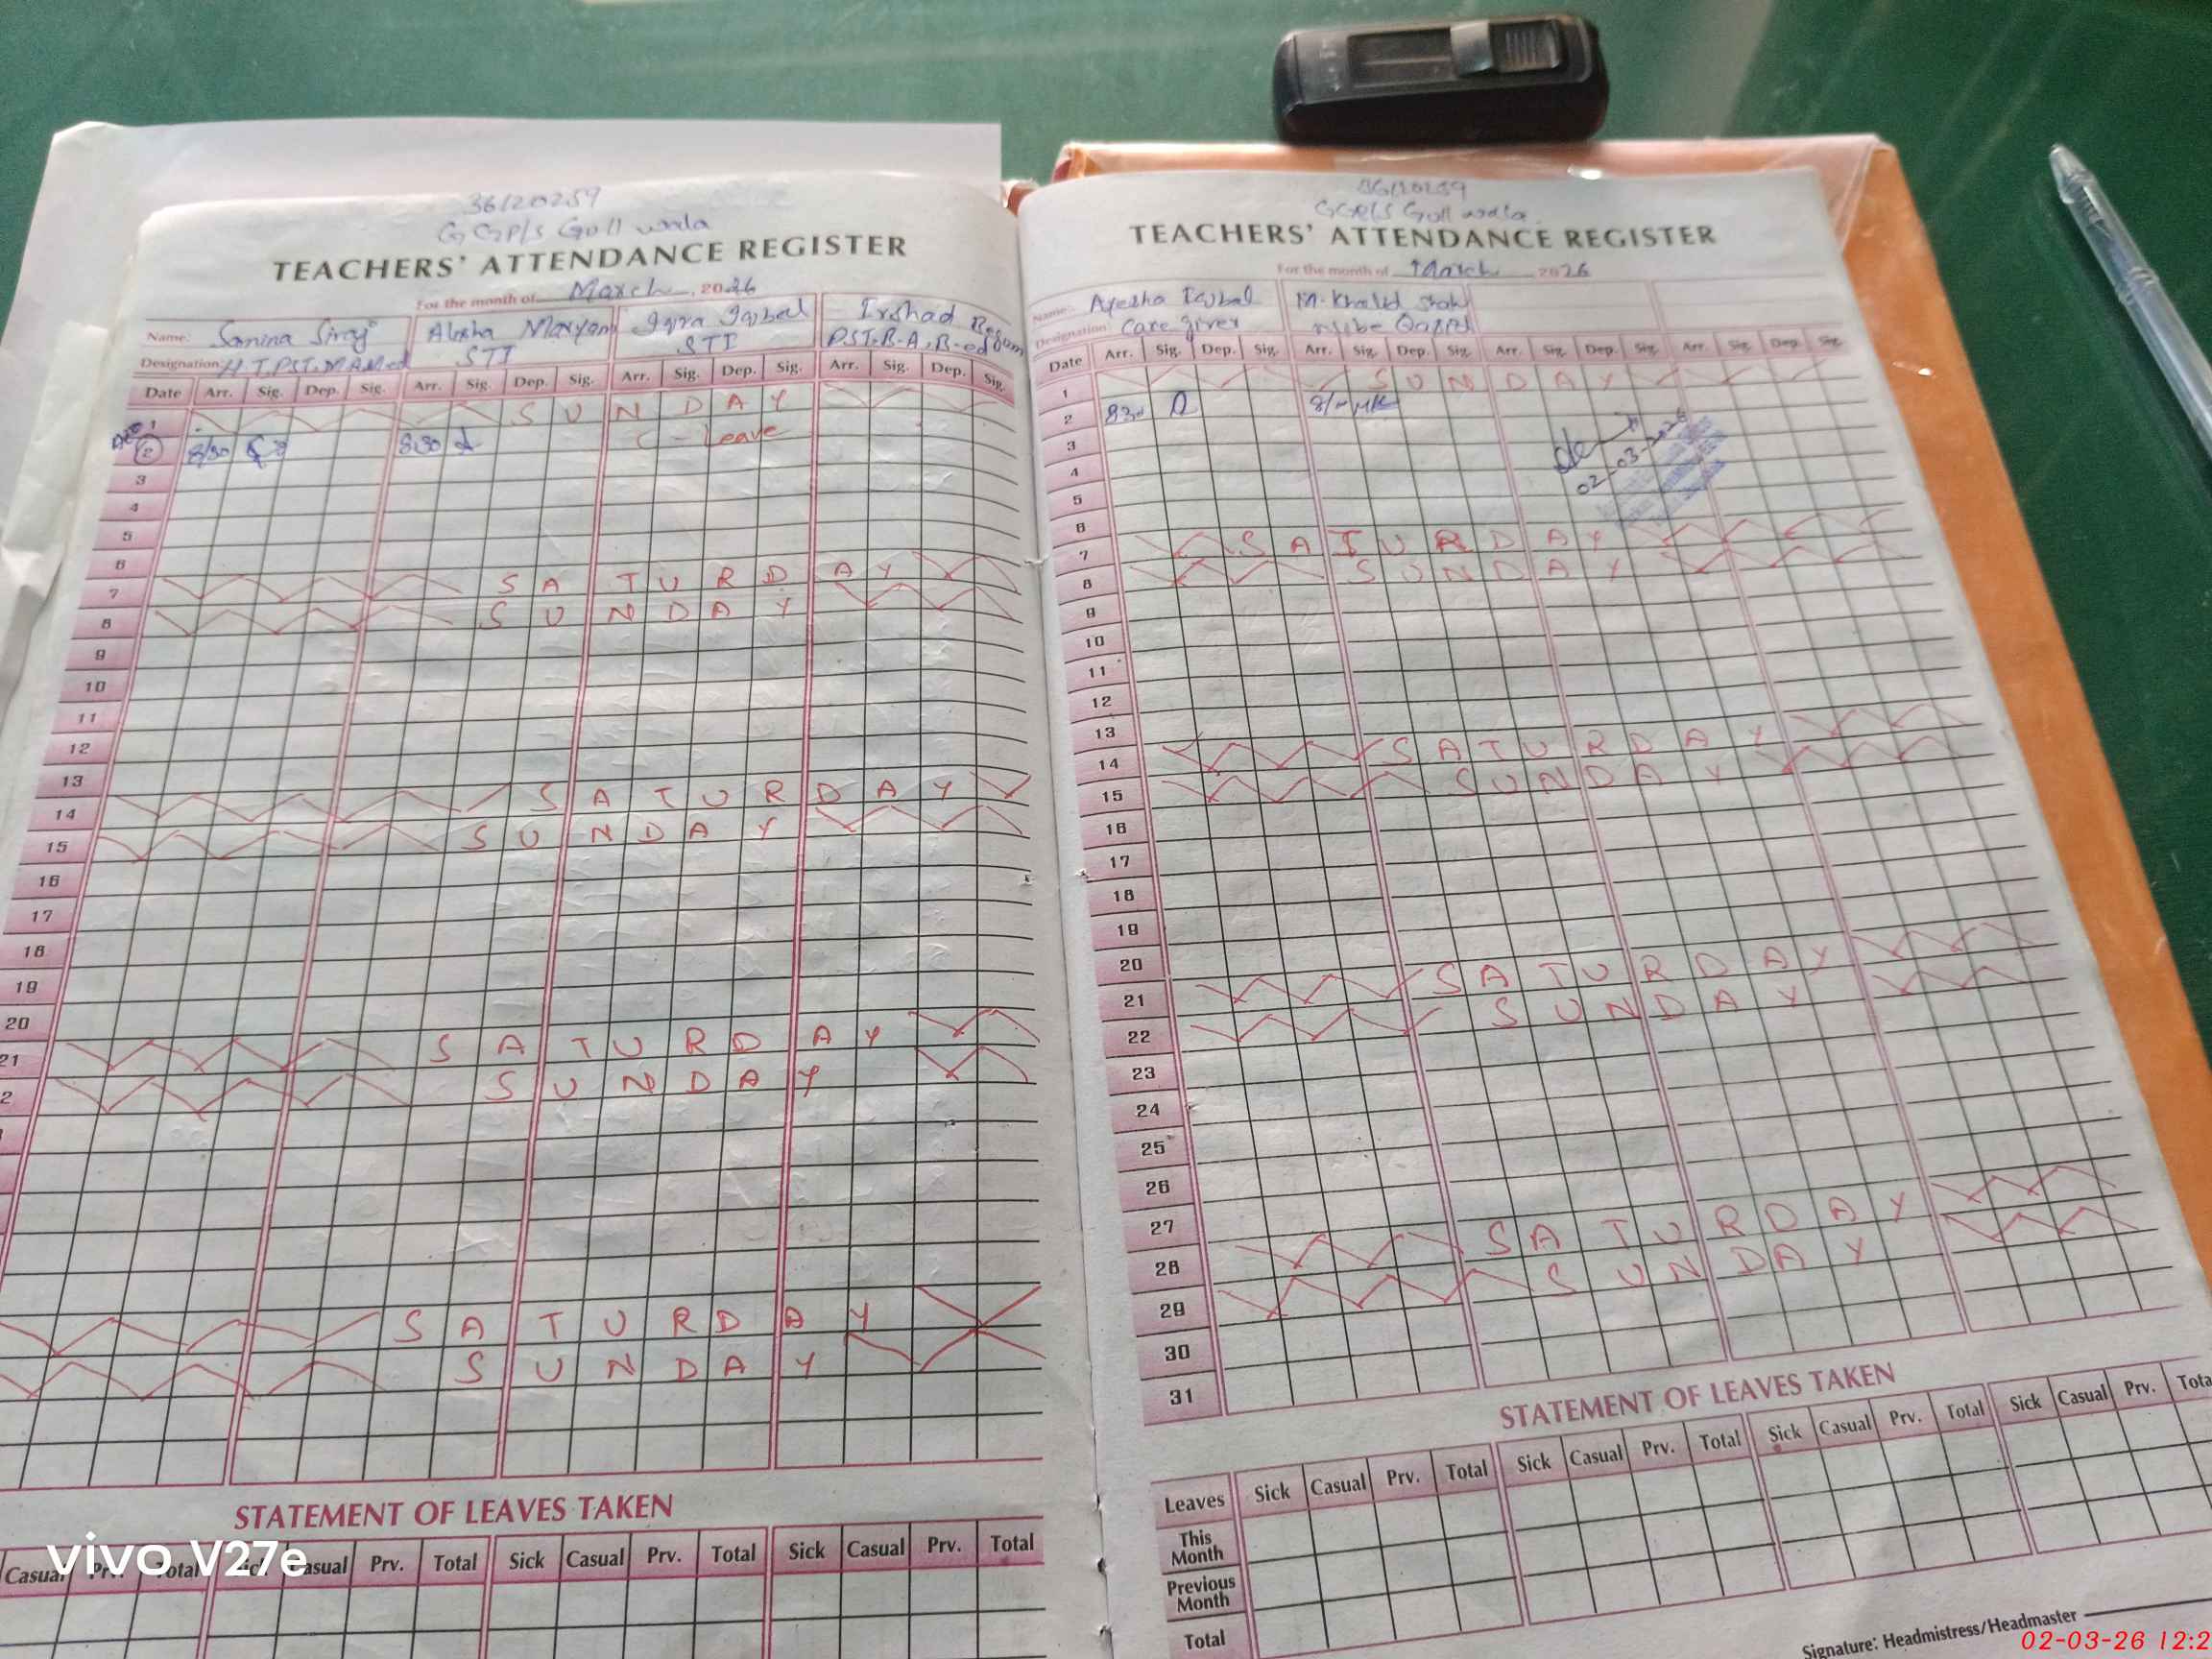 36120259
GGP/S Gull wala
TEACHERS' ATTENDANCE REGISTER
For the month of March, 2026
Name: Samina Siraj Alesha Maryam Iqra Iqbal Irshad Begum
Designation: H.T, PST, M.A, M.ed STI STI PST, B-A, B-ed
Date Arr. Sig. Dep. Sig. Arr. Sig. Dep. Sig. Arr. Sig. Dep. Sig. Arr. Sig. Dep. Sig.
1 SUNDAY
2 8/30 8:30 C-Leave
3
4
5
6
7 SATURDAY
8 SUNDAY
9
10
11
12
13
14 SATURDAY
15 SUNDAY
16
17
18
19
20
21 SATURDAY
2 SUNDAY
SATURDAY
SUNDAY
STATEMENT OF LEAVES TAKEN
Casual Prv. Total Sick Casual Prv. Total Sick Casual Prv. Total Sick Casual Prv. Total
vivo V27e
36120259
GGP/S Gull wala
TEACHERS' ATTENDANCE REGISTER
For the month of March 2026
Name: Ayesha Iqbal M. Khalid Shah
Designation: Care giver
Date Arr. Sig. Dep. Sig. Arr. Sig. Dep. Sig. Arr. Sig. Dep. Sig. Arr. Sig. Dep. Sig.
1 SUNDAY
2 830 8/- MK
02-03-2026
3
4
5
6
7 SATURDAY
8 SUNDAY
9
10
11
12
13
14 SATURDAY
15 SUNDAY
16
17
18
19
20
21 SATURDAY
22 SUNDAY
23
24
25
26
27
28 SATURDAY
29 SUNDAY
30
31
STATEMENT OF LEAVES TAKEN
Leaves Sick Casual Prv. Total Sick Casual Prv. Total Sick Casual Prv. Total Sick Casual Prv. Tota
This Month
Previous Month
Total
Signature: Headmistress/Headmaster
02-03-26 12:2